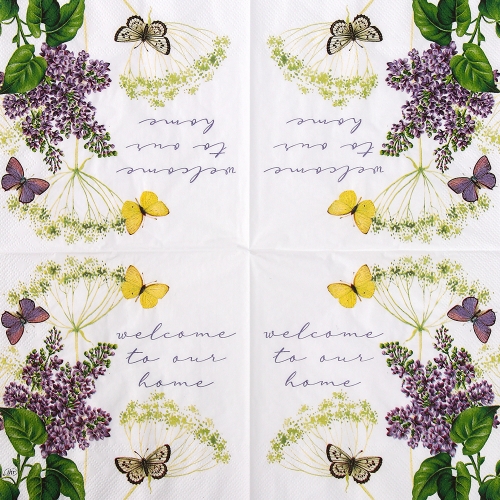 welcome
to our
home
welcome
to our
home
welcome
to our
home
welcome
to our
home